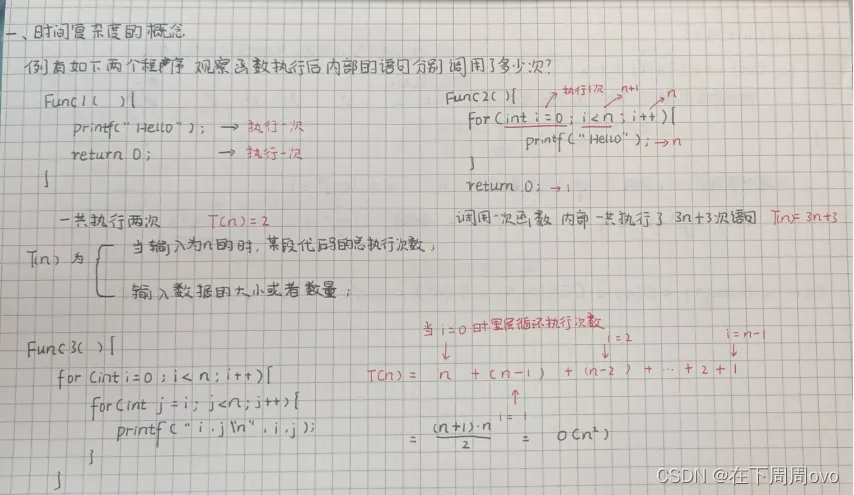 一、时间复杂度的概念
例有如下两个程序 观察函数执行后内部的语句分别调用了多少次?
Func1( ){
printf("Hello"); → 执行一次
return 0; → 执行一次
}
一共执行两次 T(n)=2
Func2( ){
执行1次 n+1 n
for(int i=0; i<n; i++){
printf("Hello"); → n
}
return 0; → 1
调用一次函数 内部一共执行了 3n+3次语句 T(n)=3n+3
T(n) 为
当输入为n的时,某段代码的总执行次数;
输入数据的大小或者数量;
Func3( ){
for(int i=0; i<n; i++){
for(int j=i; j<n; j++){
printf("i.j\n", i,j);
}
}
当i=0时里层循环执行次数
i=2 i=n-1
T(n) = n + (n-1) + (n-2) + … + 2 + 1
i=1
= (n+1)·n / 2 = O(n²)
CSDN @在下周周ovo